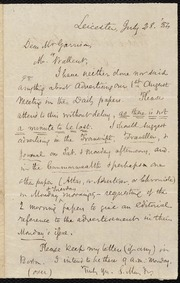 Leicester, July 28. '56
Dear Mr Garrison
Mr Wallcut,
I have neither done nor said
anything about Advertising our 1st August
Meeting in the Daily papers. Please
attend to this without delay, as there is not
a minute to be lost. I should suggest
advertising in the Transcript, Traveller, &
Journal on Sat. & Monday afternoons, and
in the Commonwealth & perhaps one
other paper (Atlas, or Advertiser or Chronicle)
on Monday mornings — requesting of the
2 morning papers to give an editorial
reference to the advertisements in that
Monday's issue.
Please keep my letters (if any) in
Boston. I intend to be there at a.m. Monday.
(over) Truly Yrs. S. May, Jr.